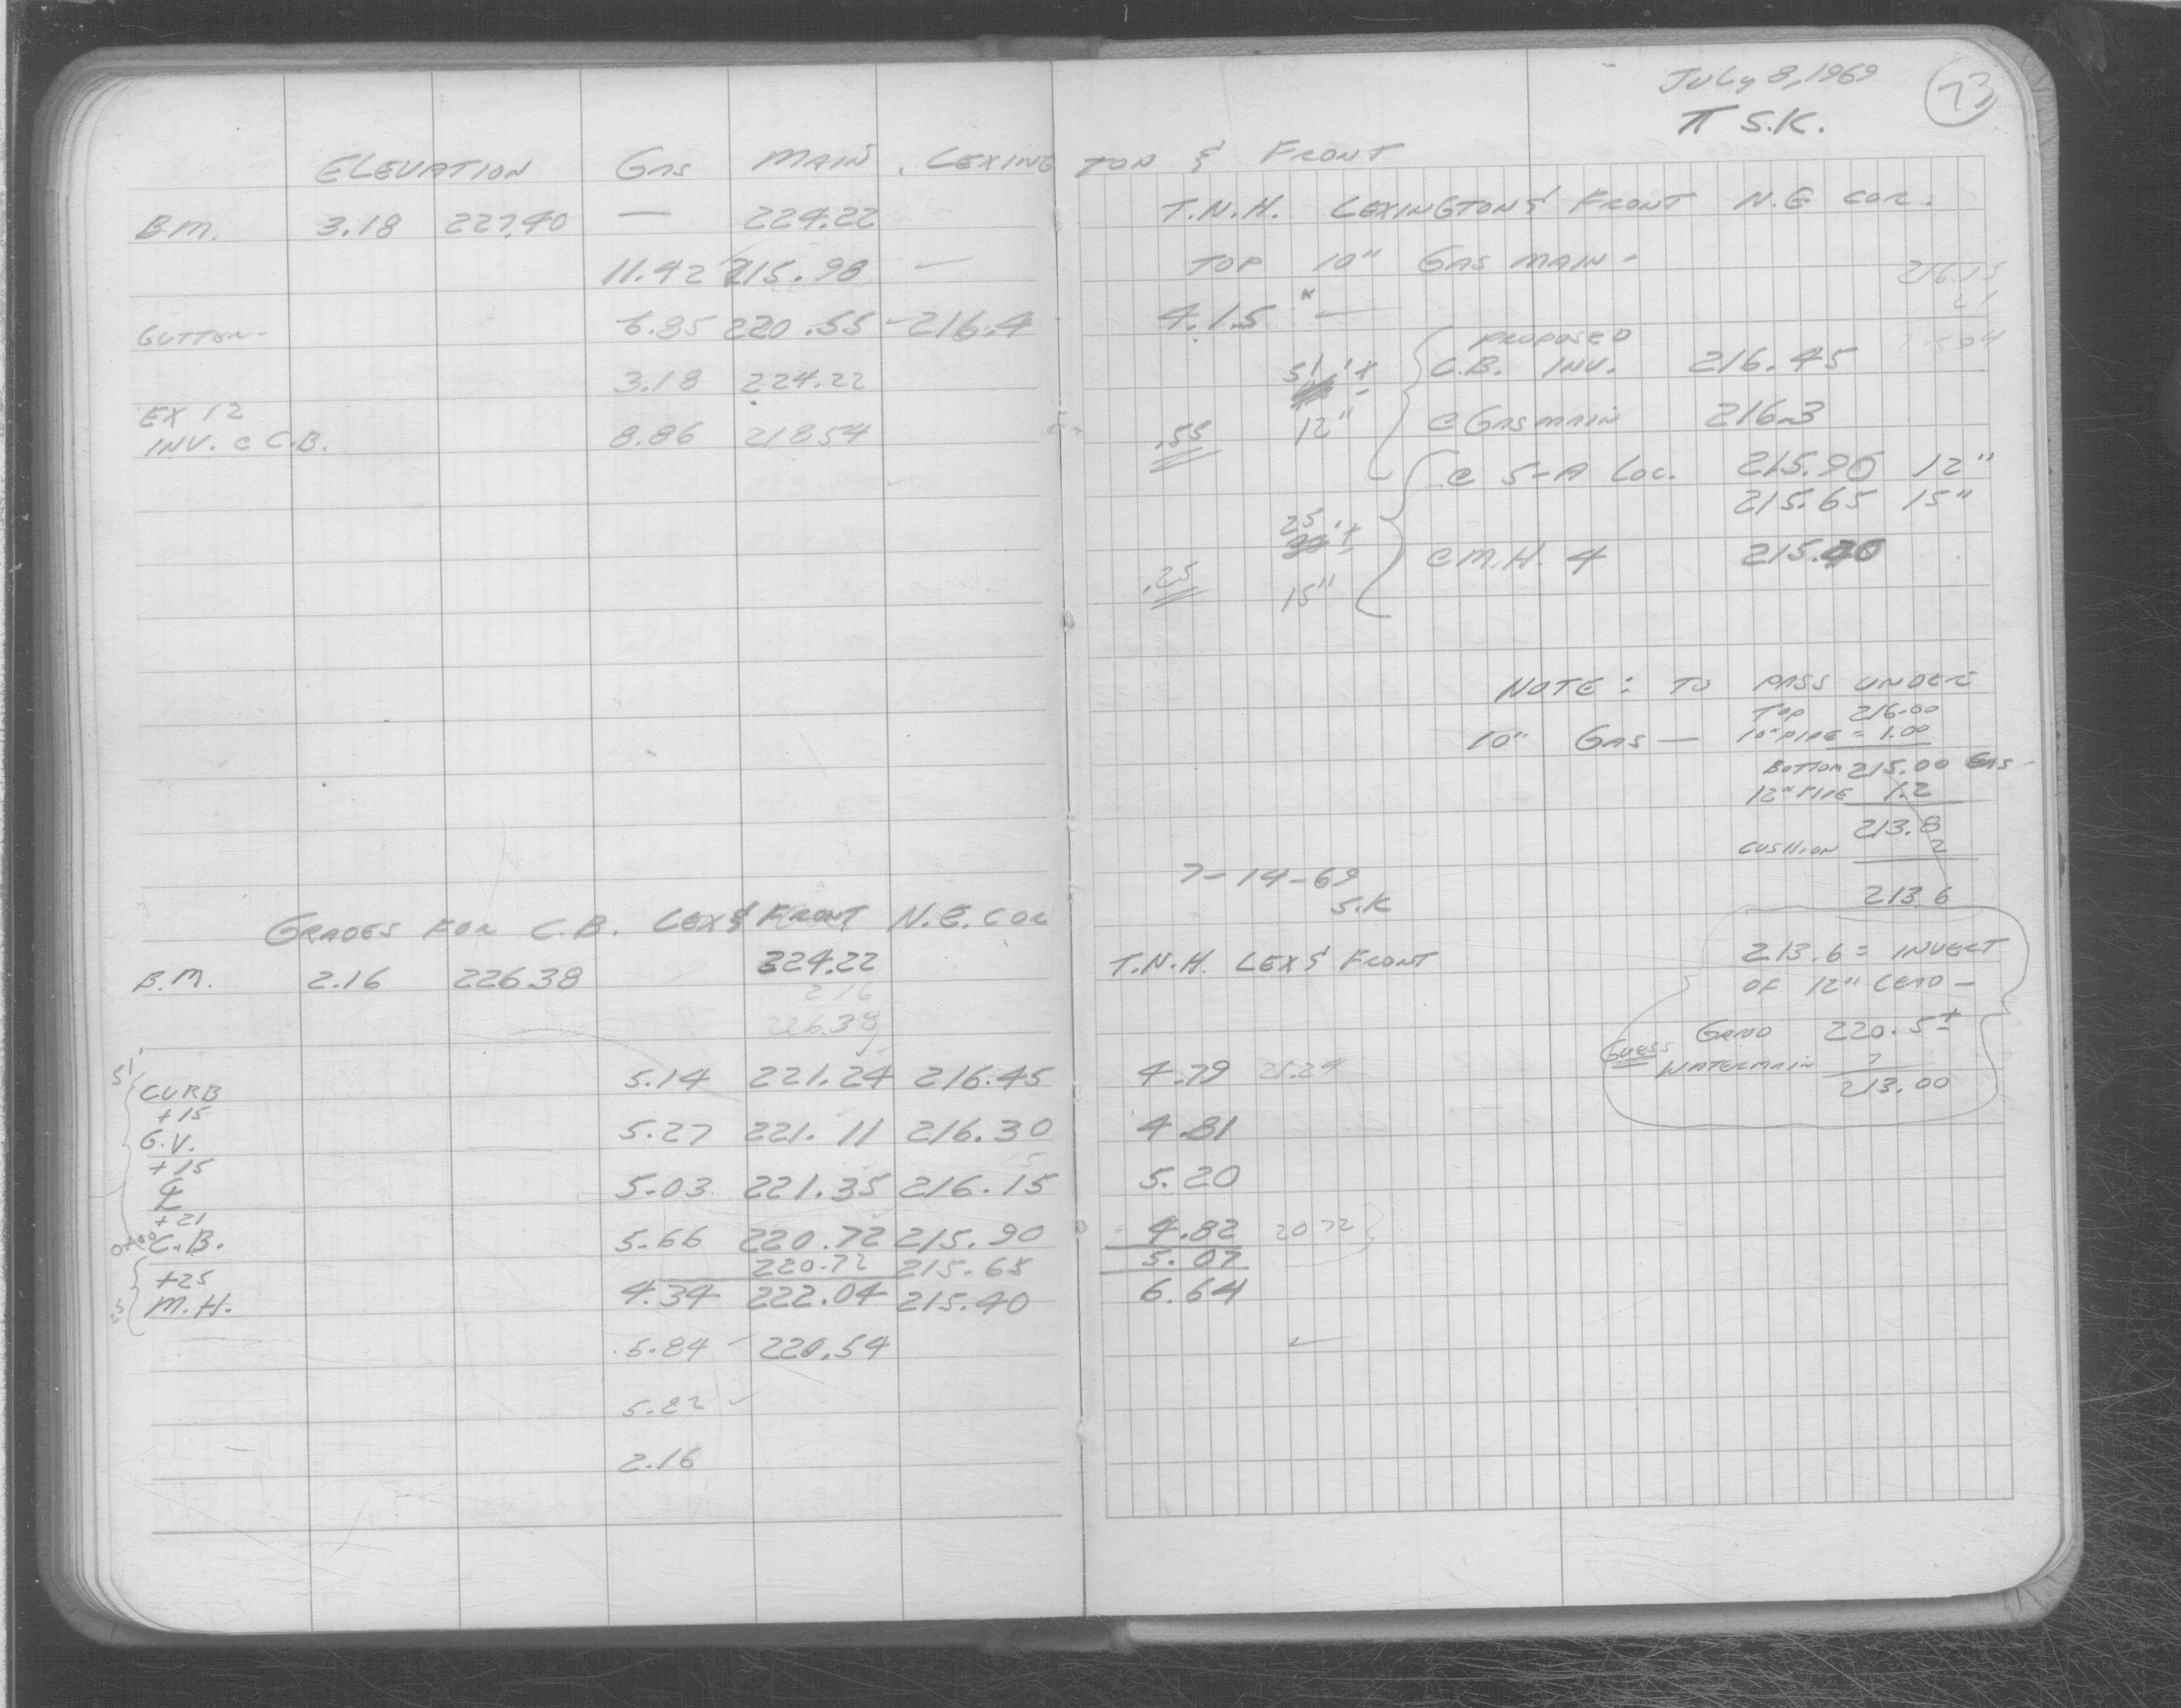 July 8, 1969
73
π S.K.
ELEVATION GAS MAIN, LEXINGTON & FRONT
B.M. 3.18 227.40 — 224.22 T.N.H. LEXINGTON & FRONT N.E COR.
11.42 215.98 — TOP 10" GAS MAIN -
GUTTER - 6.85 220.55 - 216.4 4.15
3.18 224.22
EX 12
INV. @ C.B. 8.86 218.54
PROPOSED
51'± C.B. INV. 216.45
.55 12" @ GAS MAIN 216.3
@ S-A LOC. 215.90 12"
215.65 15"
25'±
@ M.H. 4 215.40
.25 15"
NOTE: TO PASS UNDER
10" GAS — TOP 216.00
10" PIPE = 1.00
BOTTOM 215.00 GAS -
12" PIPE 1.2
213.8
CUSHION 2
213.6
213.6 = INVERT
OF 12" LEAD -
GRND 220.5±
GUESS WATERMAIN 7
213.00
7-14-69
S.K
GRADES FOR C.B. LEX & FRONT N.E. COR
B.M. 2.16 226.38 224.22 T.N.H. LEX & FRONT
2.16
226.38
51'
CURB 5.14 221.24 216.45 4.79 21.24
+15
G.V. 5.27 221.11 216.30 4.81
+15
℄ 5.03 221.35 216.15 5.20
+21
0+00 C.B. 5.66 220.72 215.90 4.82 20 72
220.72 215.65 5.07
+25
M.H. 4.34 222.04 215.40 6.64
5.84 - 220.54
5.82
2.16